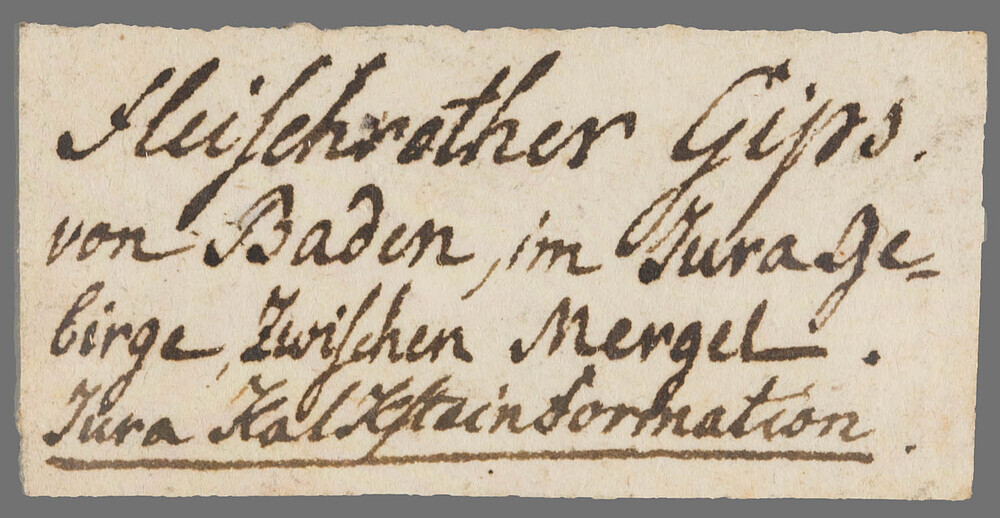 Fleiſchrother Gips.
von Baden, im Jura Ge-
birge, Zwiſchen Mergel.
Jura KalKſteinformation.